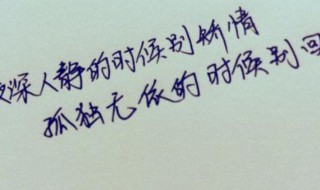 深人静的时候别矫情
孤独无依的时候别回